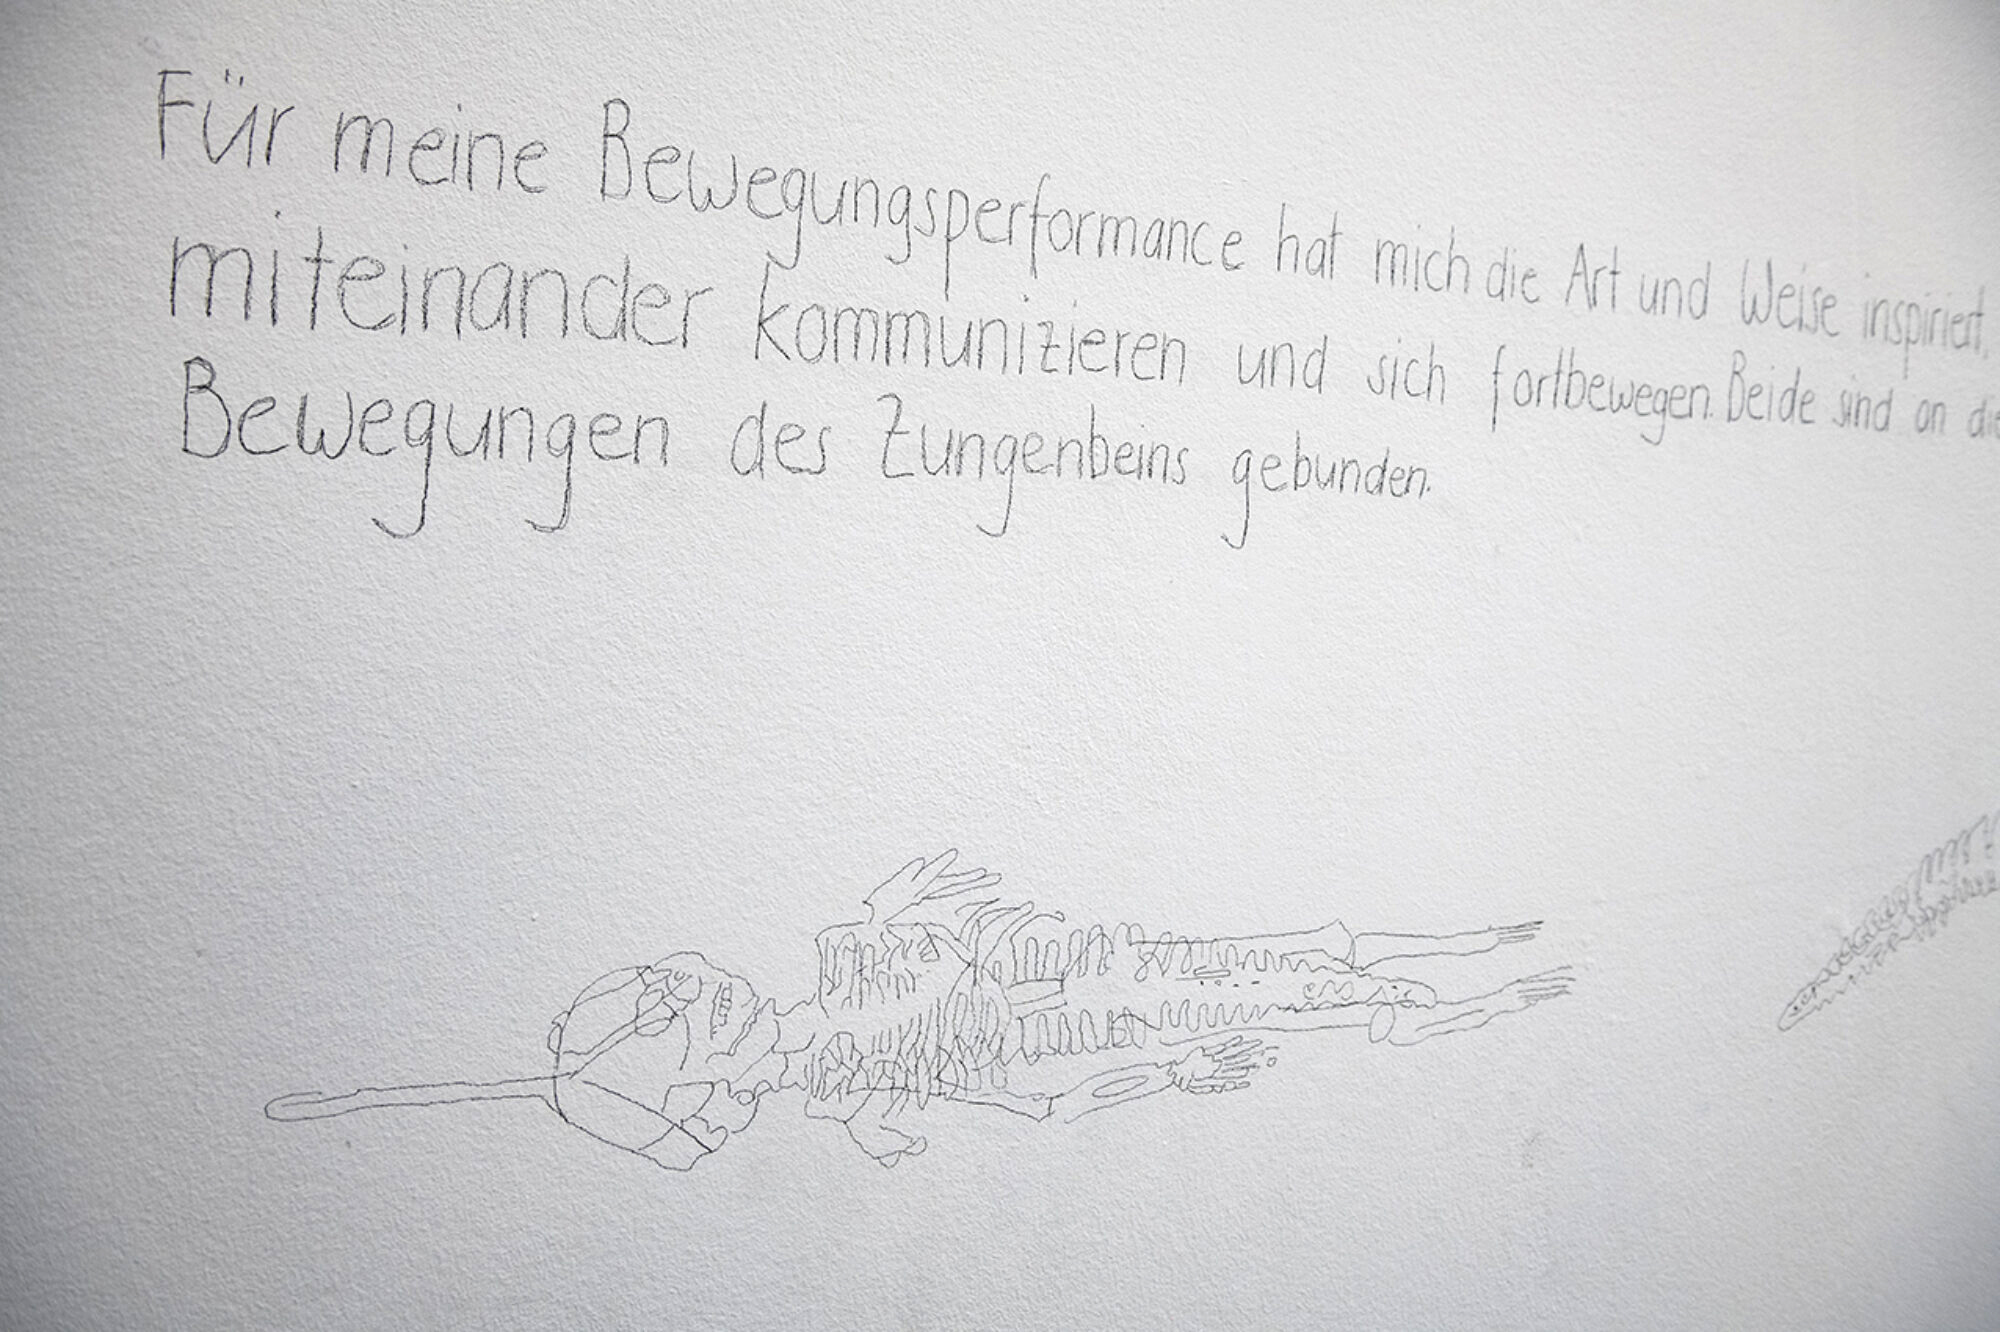 Für meine Bewegungsperformance hat mich die Art und Weise inspiriert,
miteinander kommunizieren und sich fortbewegen. Beide sind an die
Bewegungen des Zungenbeins gebunden.